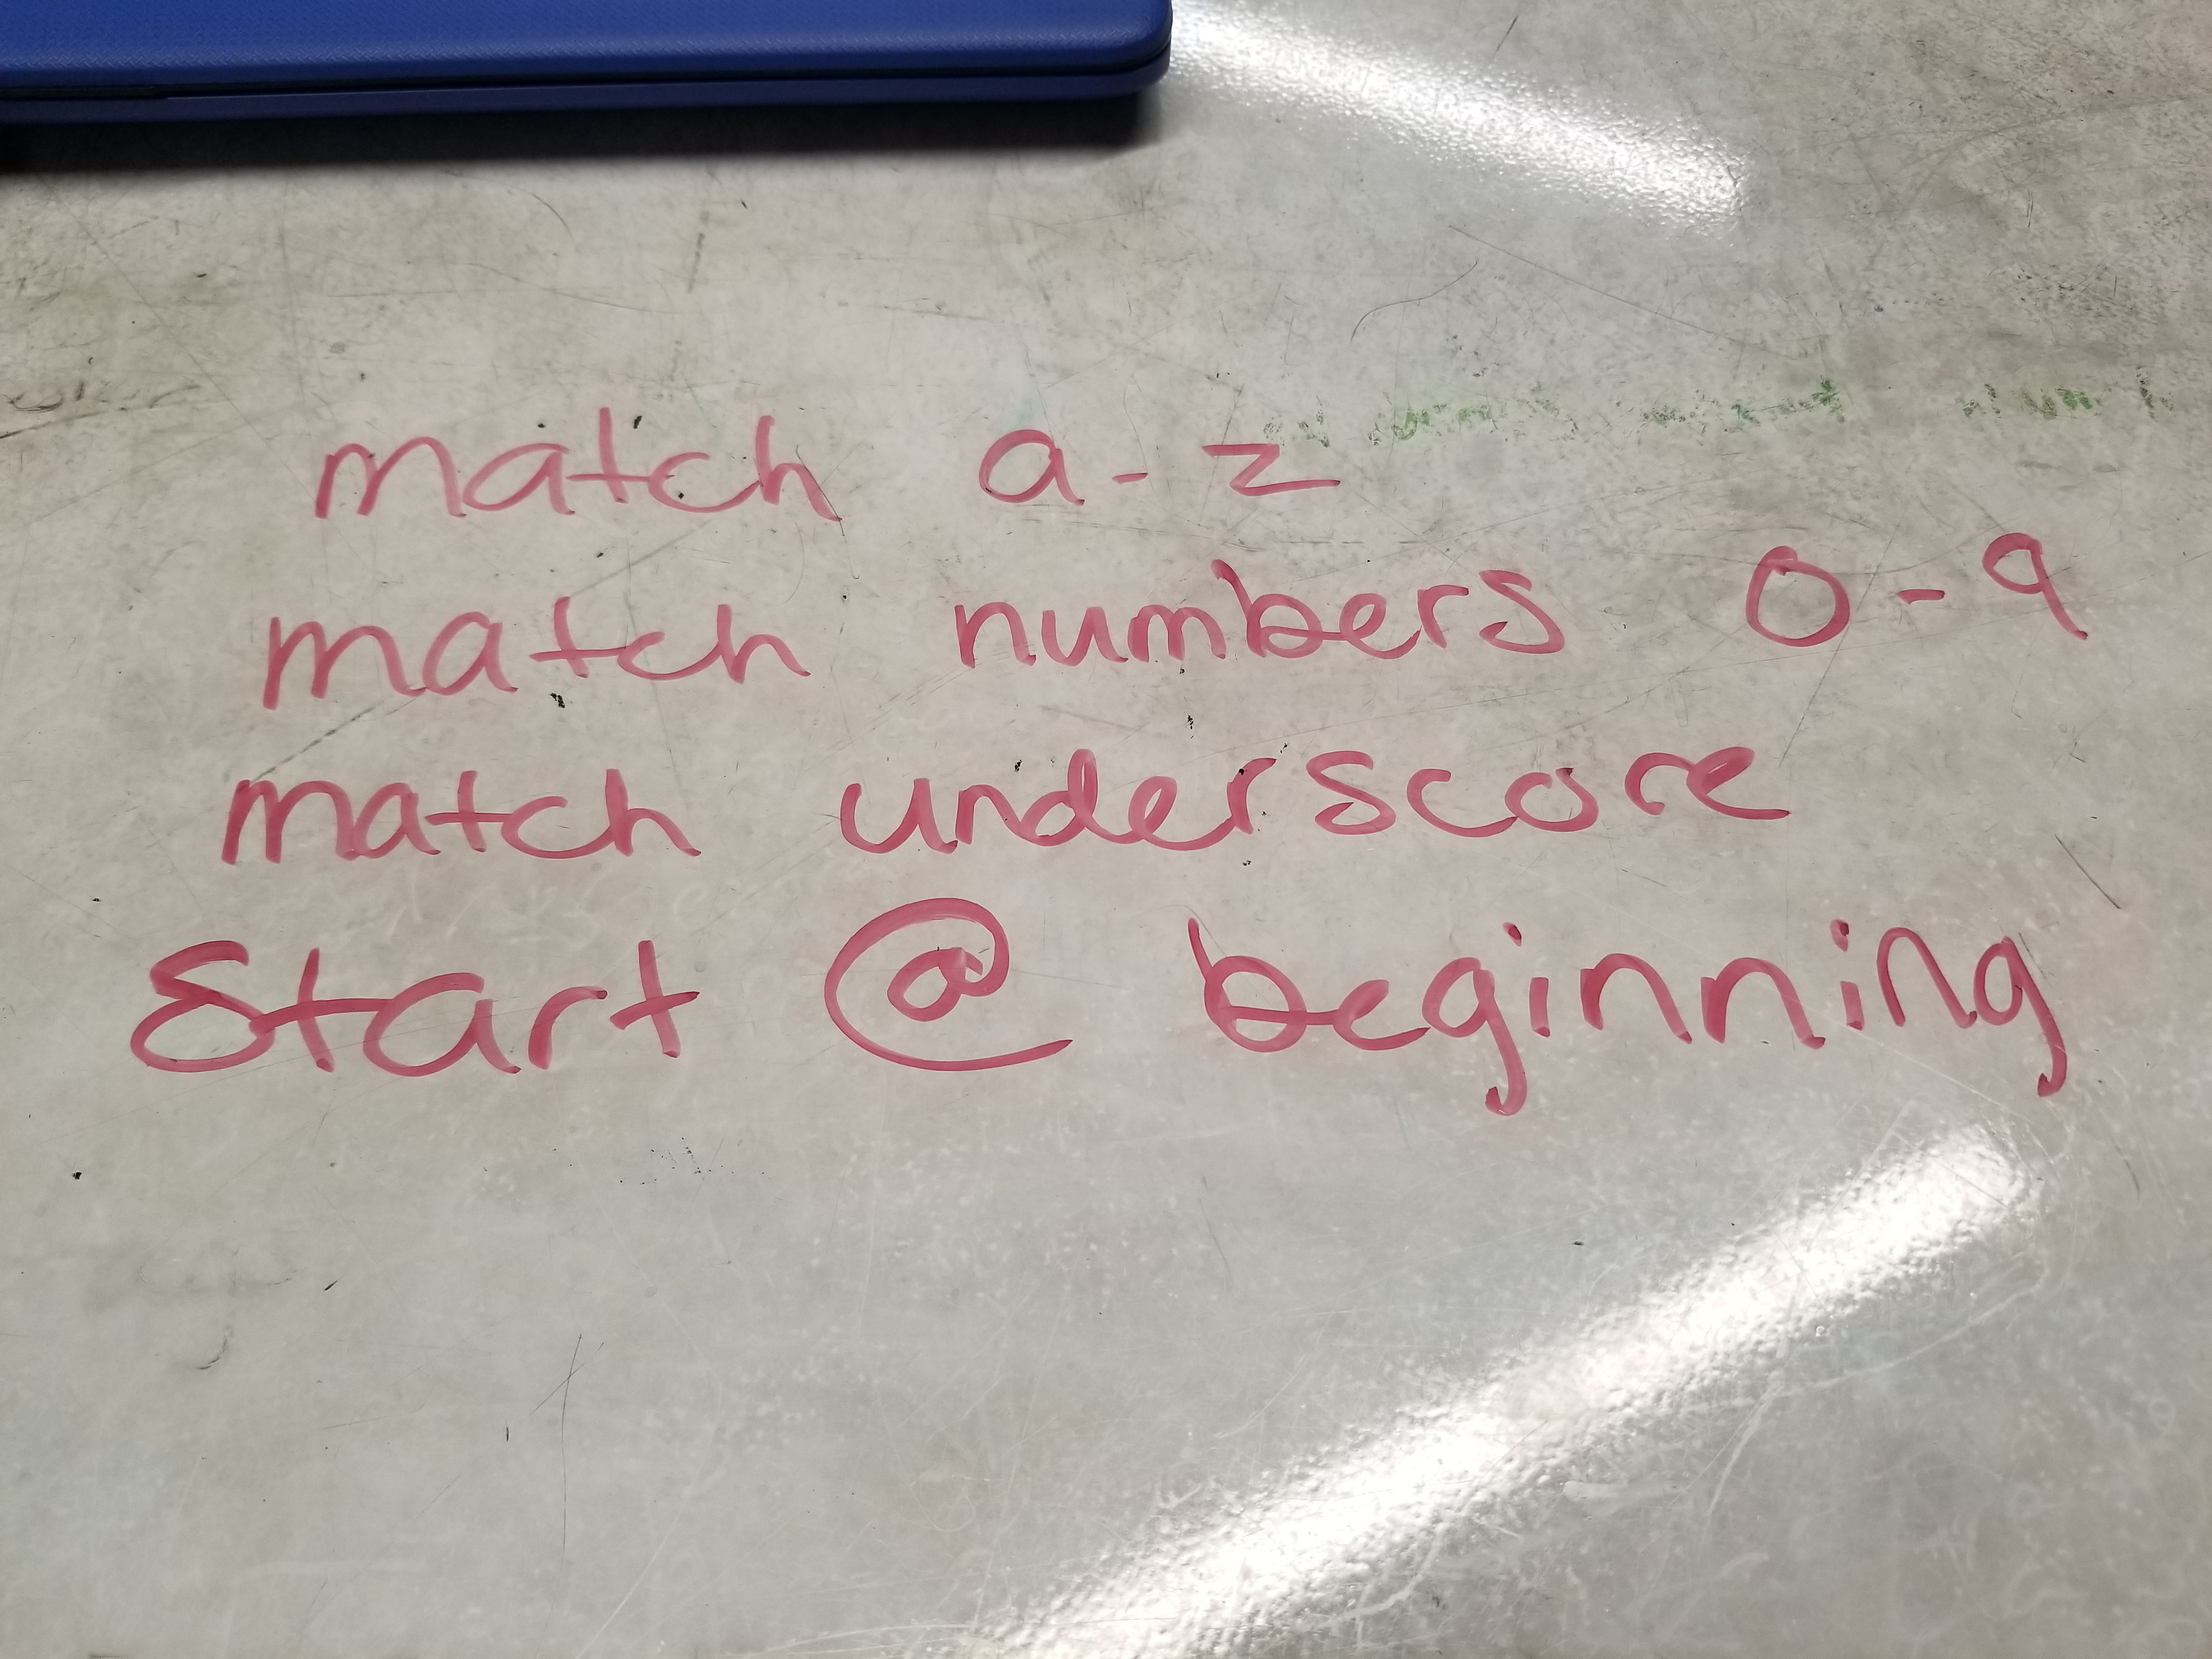 match a-z
match numbers 0-9
match underscore
Start @ beginning